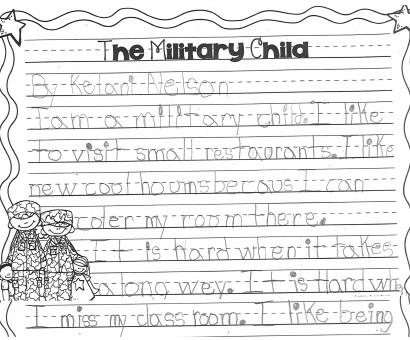 The Military Child
By Kelani Nelson
I am a military child. I like
to visit small restaurants. I like
new cool houms becaus I can
coler my room there.
It is hard when it takes
a long wey. It is Hard whe
I miss my class room. I like being